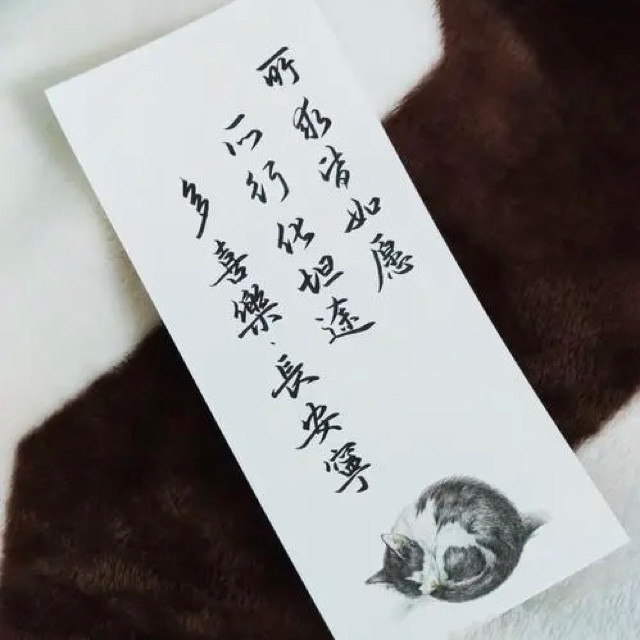 所求皆如愿
所行化坦途
多喜樂·長安寧